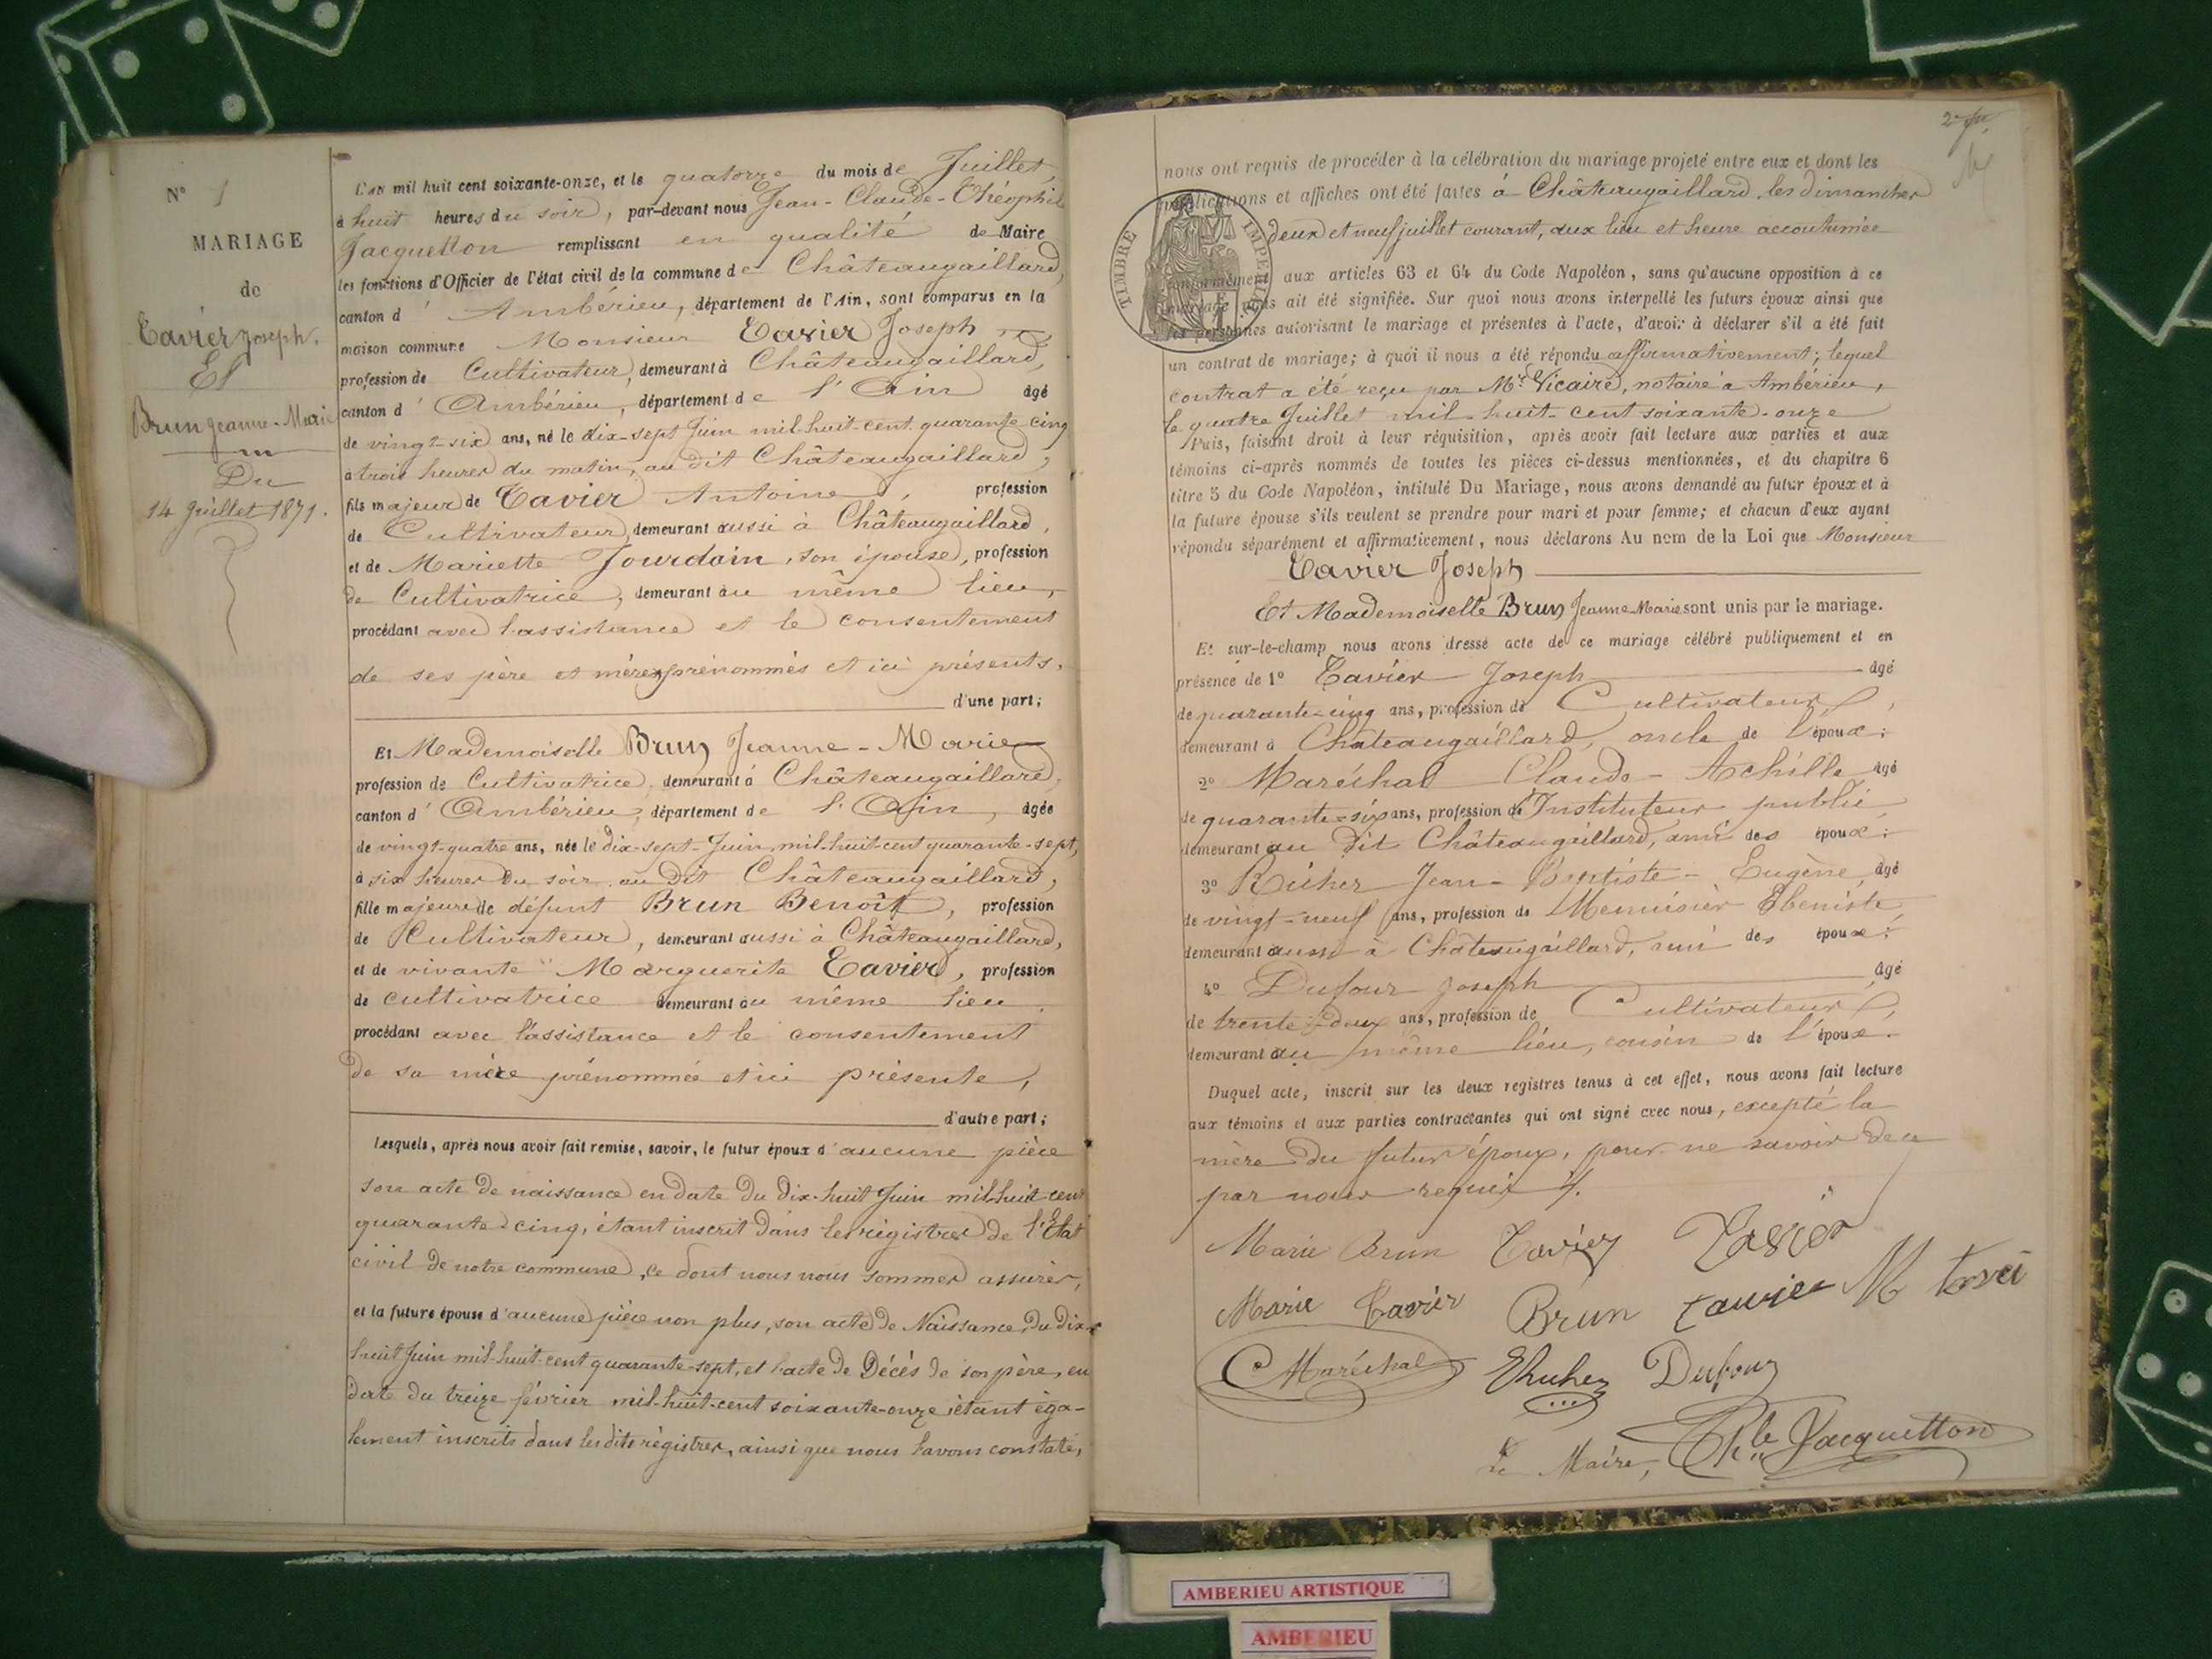 N° 1
MARIAGE
de
Tavier Joseph.
Et
Brun Jeanne-Marie
Du
14 Juillet 1871.
L'an mil huit cent soixante-onze, et le quatorze du mois de Juillet,
à huit heures du soir, par-devant nous Jean-Claude-Théophile
Jacquetton remplissant en qualité de Maire
les fonctions d'Officier de l'état civil de la commune de Châteaugaillard,
canton d'Ambérieu, département de l'Ain, sont comparus en la
maison commune Monsieur Tavier Joseph
profession de Cultivateur, demeurant à Châteaugaillard,
canton d'Ambérieu, département de l'Ain âgé
de vingt-six ans, né le dix-sept Juin mil-huit-cent-quarante-cinq
à trois heures du matin, au dit Châteaugaillard,
fils majeur de Tavier Antoine, profession
de Cultivateur, demeurant aussi à Châteaugaillard,
et de Mariette Jourdain, son épouse, profession
de Cultivatrice, demeurant au même lieu,
procédant avec l'assistance et le consentement
de ses père et mère prénommés et ici présents.
d'une part;
Et Mademoiselle Brun Jeanne-Marie
profession de Cultivatrice, demeurant à Châteaugaillard,
canton d'Ambérieu, département de l'Ain, âgée
de vingt-quatre ans, née le dix-sept-Juin, mil-huit-cent quarante-sept,
à six heures du soir, au dit Châteaugaillard,
fille majeure de défunt Brun Benoît, profession
de Cultivateur, demeurant aussi à Châteaugaillard,
et de vivante Marguerite Tavier, profession
de cultivatrice demeurant au même lieu
procédant avec l'assistance et le consentement
de sa mère prénommée et ici présente,
d'autre part;
Lesquels, après nous avoir fait remise, savoir, le futur époux d'aucune pièce
son acte de naissance en date du dix-huit Juin mil-huit-cent
quarante cinq, étant inscrit dans les régistres de l'Etat
civil de notre commune, ce dont nous nous sommes assurés,
et la future épouse d'aucune pièce non plus, son acte de Naissance, du dix-
huit Juin mil-huit-cent quarante-sept, et l'acte de Décès de son père, en
date du treize février mil-huit-cent soixante-onze étant éga-
lement inscrits dans les dits régistres, ainsi que nous l'avons constaté,
nous ont requis de procéder à la célébration du mariage projeté entre eux et dont les
publications et affiches ont été faites à Châteaugaillard, les dimanches
deux et neuf juillet courant, aux lieu et heure accoutumée
conformément aux articles 63 et 64 du Code Napoléon, sans qu'aucune opposition à ce
mariage nous ait été signifiée. Sur quoi nous avons interpellé les futurs époux ainsi que
les personnes autorisant le mariage et présentes à l'acte, d'avoir à déclarer s'il a été fait
un contrat de mariage; à quoi il nous a été répondu affirmativement; lequel
contrat a été reçu par Mr. Vicaire, notaire à Ambérieu,
le quatre Juillet mil-huit-cent soixante-onze
Puis, faisant droit à leur réquisition, après avoir fait lecture aux parties et aux
témoins ci-après nommés de toutes les pièces ci-dessus mentionnées, et du chapitre 6
titre 5 du Code Napoléon, intitulé Du Mariage, nous avons demandé au futur époux et à
la future épouse s'ils veulent se prendre pour mari et pour femme; et chacun d'eux ayant
répondu séparément et affirmativement, nous déclarons Au nom de la Loi que Monsieur
Tavier Joseph
Et Mademoiselle Brun Jeanne-Marie sont unis par le mariage.
Et sur-le-champ nous avons dressé acte de ce mariage célébré publiquement et en
présence de 1° Tavier Joseph âgé
de quarante-cinq ans, profession de Cultivateur,
demeurant à Châteaugaillard, oncle de l'époux;
2° Maréchal Claude-Achille âgé
de quarante-six ans, profession d'Instituteur public
demeurant au dit Châteaugaillard, ami des époux;
3° Ruher Jean-Baptiste-Eugène, âgé
de vingt-neuf ans, profession de Menuisier Ebeniste,
demeurant aussi à Châteaugaillard, ami des époux;
4° Dufour Joseph âgé
de trente-deux ans, profession de Cultivateur,
demeurant au même lieu, cousin de l'époux.
Duquel acte, inscrit sur les deux registres tenus à cet effet, nous avons fait lecture
aux témoins et aux parties contractantes qui ont signé avec nous, excepté la
mère du futur époux, pour ne savoir de ce
par nous requis
Marie Brun Tavier Tavier
Marie Tavier Brun Tavier M
C Maréchal Dufour
Le Maire, Jacquetton
TIMBRE IMPÉRIAL
AMBERIEU ARTISTIQUE
AMBERIEU